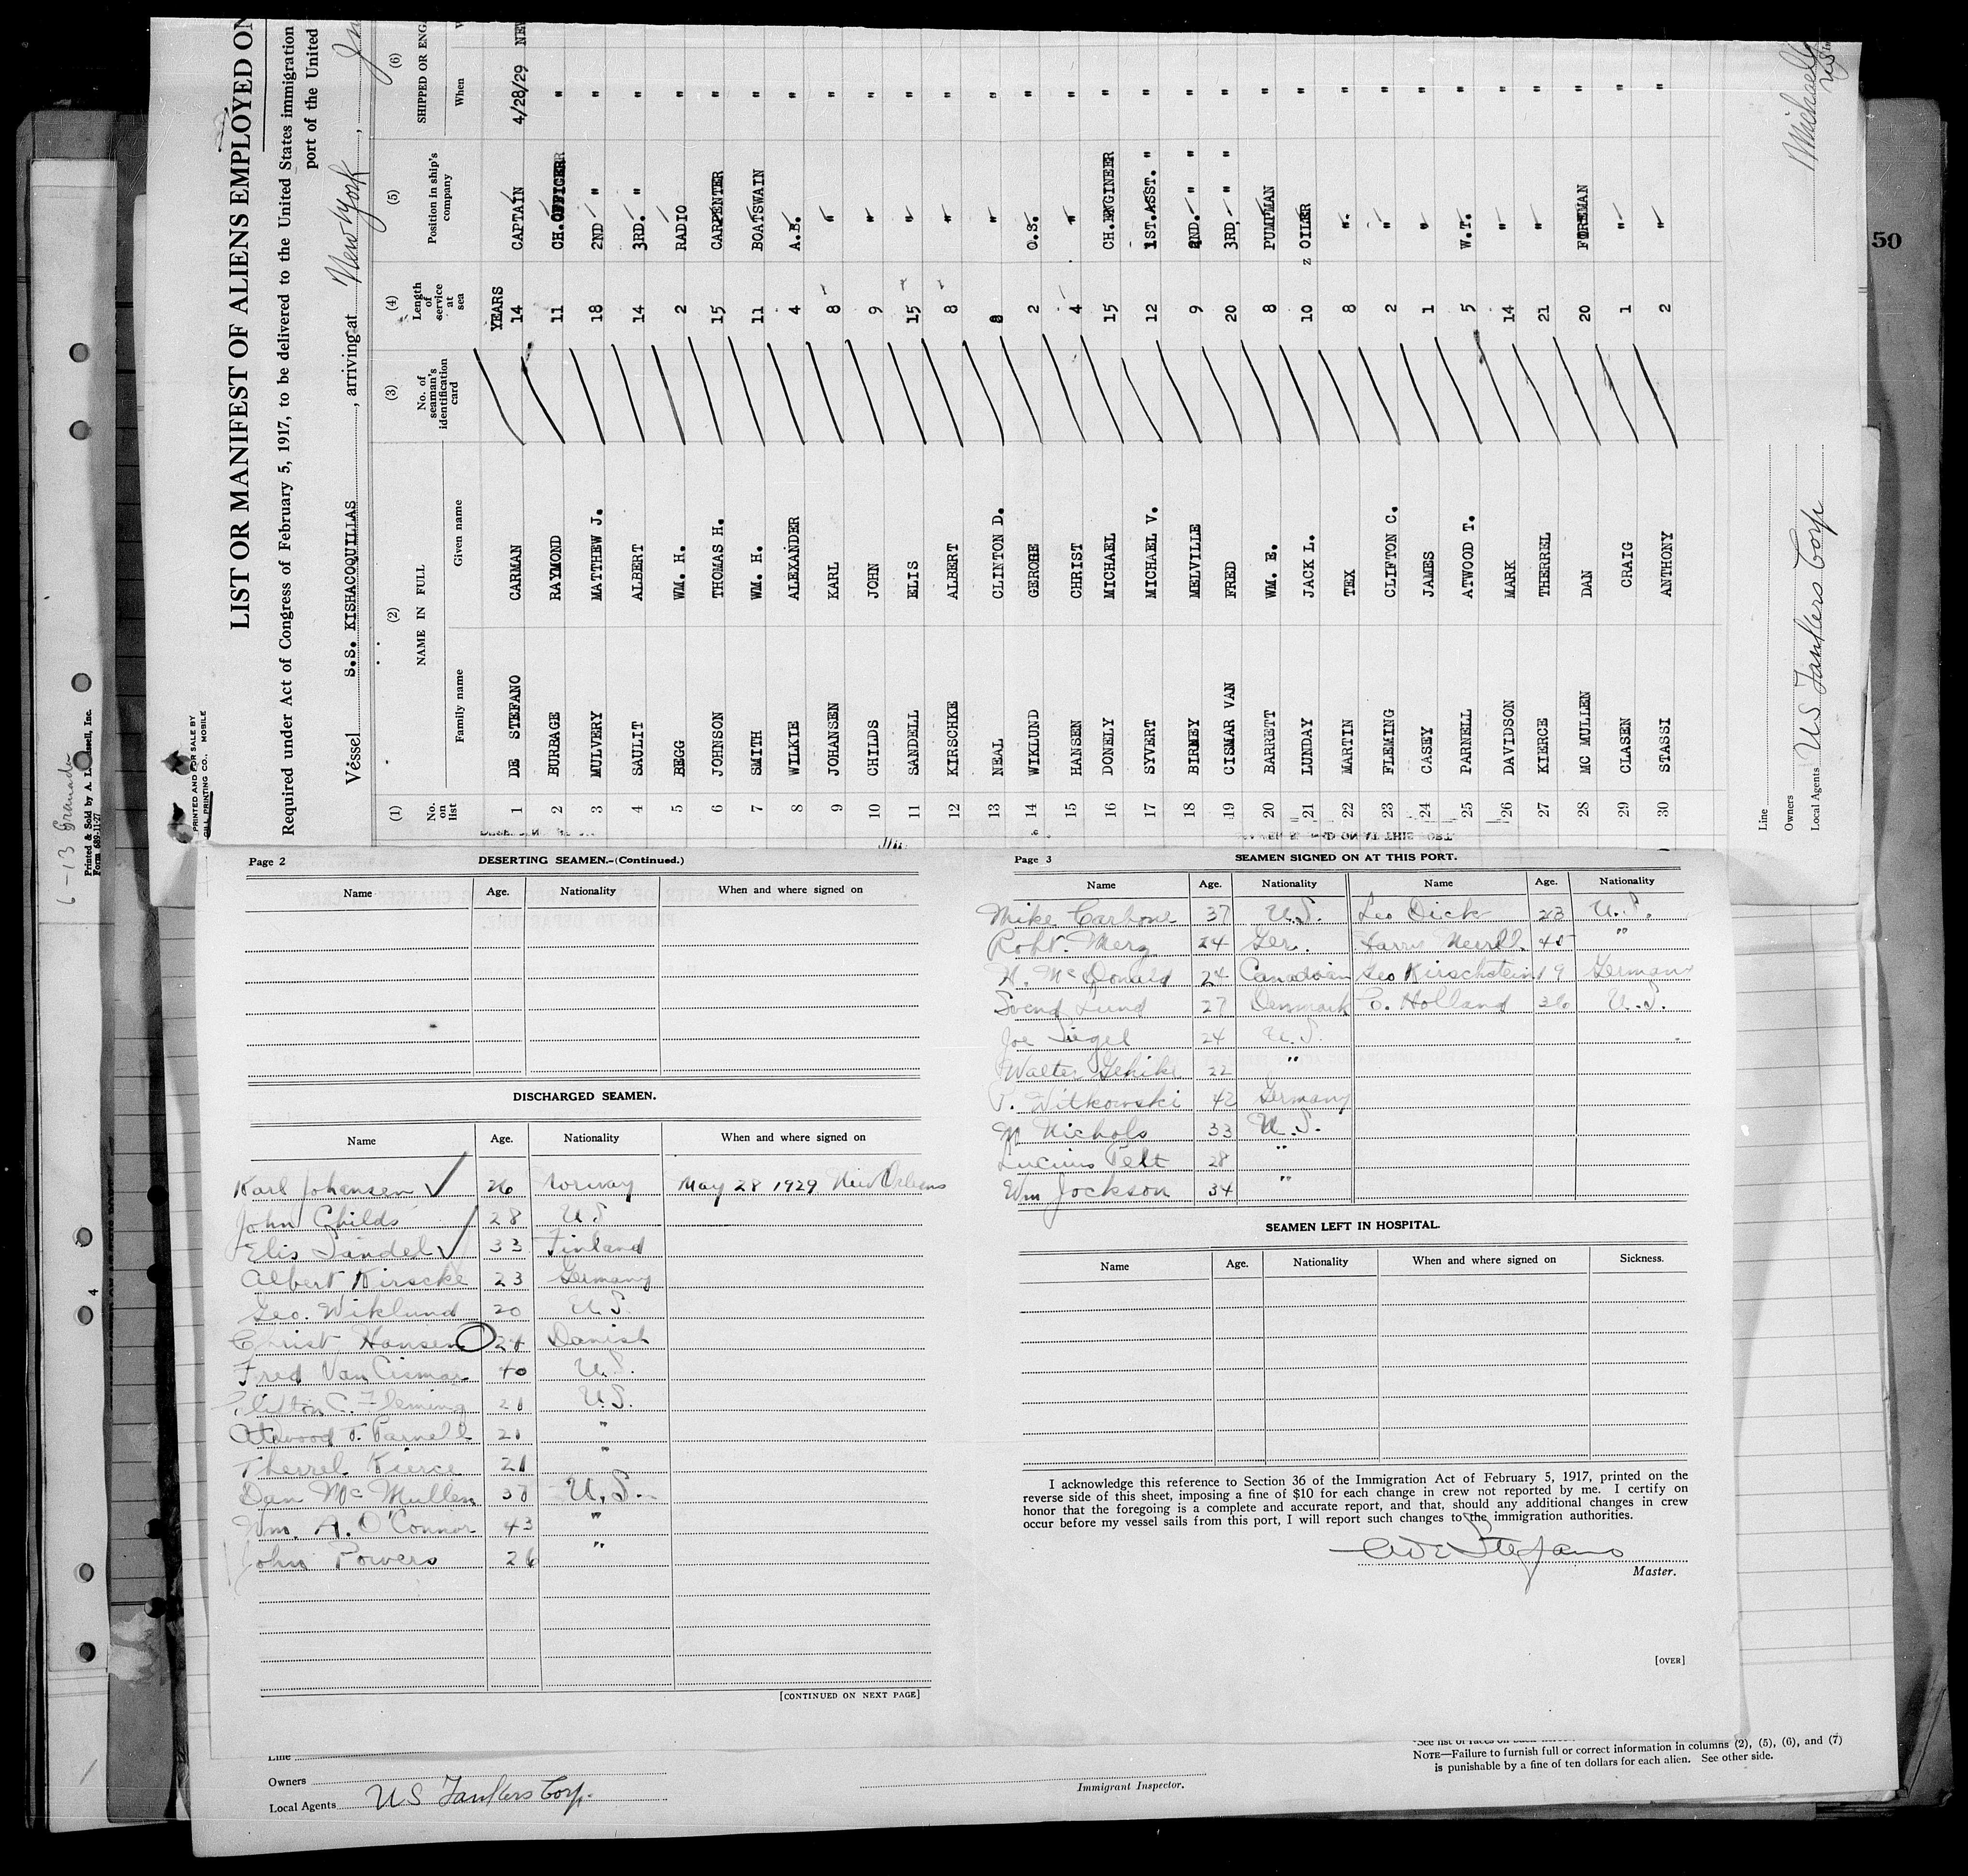 LIST OR MANIFEST OF ALIENS EMPLOYED ON
Required under Act of Congress of February 5, 1917, to be delivered to the United States immigration
port of the United
Vessel S.S. KISHACOQUILLAS, arriving at New York,
(1) (2) (3) (4) (5) (6)
No. on list NAME IN FULL Family name Given name No. of seaman's identification card Length of service at sea Position in ship's company SHIPPED OR ENG When
YEARS
1 DE STEFANO CARMAN 14 CAPTAIN 4/28/29 NEW
2 BURBAGE RAYMOND 11 CH.OFFICER "
3 MULVERY MATTHEW J. 18 2ND " "
4 SAULIT ALBERT 14 3RD. " "
5 BEGG WM. H. 2 RADIO "
6 JOHNSON THOMAS H. 15 CARPENTER "
7 SMITH WM. H. 11 BOATSWAIN "
8 WILKIE ALEXANDER 4 A.B. "
9 JOHANSEN KARL 8 " "
10 CHILDS JOHN 9 " "
11 SANDELL ELIS 15 " "
12 KIRSCHKE ALBERT 8 " "
13 NEAL CLINTON D. " "
14 WIKLUND GEROGE 2 O.S. "
15 HANSEN CHRIST 4 " "
16 DONELY MICHAEL 15 CH.ENGINEER "
17 SYVERT MICHAEL V. 12 1ST.ASST. " "
18 BIRNEY MELVILLE 9 2ND. " " "
19 CISMAR VAN FRED 20 3RD. " " "
20 BARRETT WM. E. 8 PUMPMAN "
21 LUNDAY JACK L. 10 z OILER "
22 MARTIN TEX 8 " "
23 FLEMING CLIFTON C. 2 " "
24 CASEY JAMES 1 " "
25 PARNELL ATWOOD T. 5 W.T. "
26 DAVIDSON MARK 14 " "
27 KIERCE THERREL 21 " "
28 MC MULLEN DAN 20 FIREMAN "
29 CLASEN CRAIG 1 " "
30 STASSI ANTHONY 2 " "
Line
Owners
Local Agents US Tankers Corp
Michaell
PRINTED AND FOR SALE BY
GILL PRINTING CO., MOBILE
6-13 Granada
Printed & Sold by A. Inc.
Form 689-11-27
50
4
Page 2 DESERTING SEAMEN.-(Continued.)
Name Age. Nationality When and where signed on
DISCHARGED SEAMEN.
Name Age. Nationality When and where signed on
Karl Johansen 26 Norway May 28 1929 New Orleans
John Childs 28 U S
Elis Sandel 33 Finland
Albert Kirscke 23 Germany
Geo. Wiklund 20 U. S.
Christ Hansen Danish
Fred Van Cismar 40 U. S.
Clifton C. Fleming 21 U.S.
Atwood T. Parnell 21 "
Therrel Kierce 21 "
Dan McMullen 38 U. S.
Wm. A. O'Connor 43 "
John Powers 26 "
[CONTINUED ON NEXT PAGE]
Page 3 SEAMEN SIGNED ON AT THIS PORT.
Name Age. Nationality Name Age. Nationality
Mike Carbone 37 U.S. Leo Dick 23 U. S.
Robt. Merz 24 Ger. Harry Merrill 45 "
H. McDonald 24 Canadian Geo Kirschstein 19 Germany
Svend Lund 27 Denmark C. Holland 36 U. S.
Joe Siegel 24 U. S.
Walter 22 "
P. Witkowski 42 Germany
M Nichols 33 U. S.
Lucius Pelt 28 "
Wm Jockson 34 "
SEAMEN LEFT IN HOSPITAL.
Name Age. Nationality When and where signed on Sickness.
I acknowledge this reference to Section 36 of the Immigration Act of February 5, 1917, printed on the
reverse side of this sheet, imposing a fine of $10 for each change in crew not reported by me. I certify on
honor that the foregoing is a complete and accurate report, and that, should any additional changes in crew
occur before my vessel sails from this port, I will report such changes to the immigration authorities.
C De Stefano
Master.
[OVER]
Line
Owners
Local Agents US Tankers Corp.
Immigrant Inspector.
NOTE—Failure to furnish full or correct information in columns (2), (5), (6), and (7)
is punishable by a fine of ten dollars for each alien. See other side.